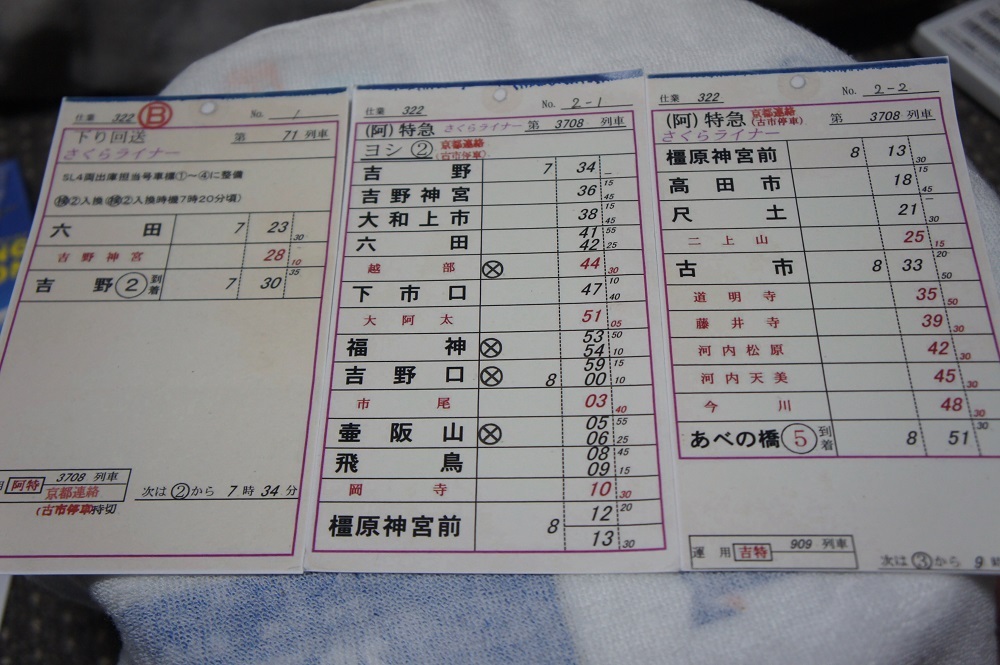 仕業 322 B No. 1
下り回送 第 71 列車
さくらライナー
SL4両出庫担当号車標①〜④に整備
入換時機7時20分頃)
六田 7 23 30
吉野神宮 28 10
吉野 ② 到着 7 30 35
阿特 3708 列車
京都連絡
(古市停車)
次は②から 7時 34分
仕業 322 No. 2-1
(阿)特急 さくらライナー 第 3708 列車
ヨシ ② 京都連絡
(古市停車)
吉野 7 34 —
吉野神宮 36 15 45
大和上市 38 15 45
六田 41 55
42 25
越部 ⊗ 44 30
下市口 47 10 40
大阿太 51 05
福神 ⊗ 53 50
54 10
吉野口 ⊗ 59 15
8 00 10
市尾 03 40
壷阪山 ⊗ 05 55
06 25
飛鳥 08 45
09 15
岡寺 10 30
橿原神宮前 8 12 20
13 30
仕業 322 No. 2-2
(阿)特急 京都連絡
(古市停車) 第 3708 列車
さくらライナー
橿原神宮前 8 13 30
高田市 18 15 45
尺土 21 — 30
二上山 25 15
古市 8 33 20 50
道明寺 35 50
藤井寺 39 30
河内松原 42 30
河内天美 45 30
今川 48 30
あべの橋 ⑤ 到着 8 51 30
運用 吉特 909 列車
次は③から 9